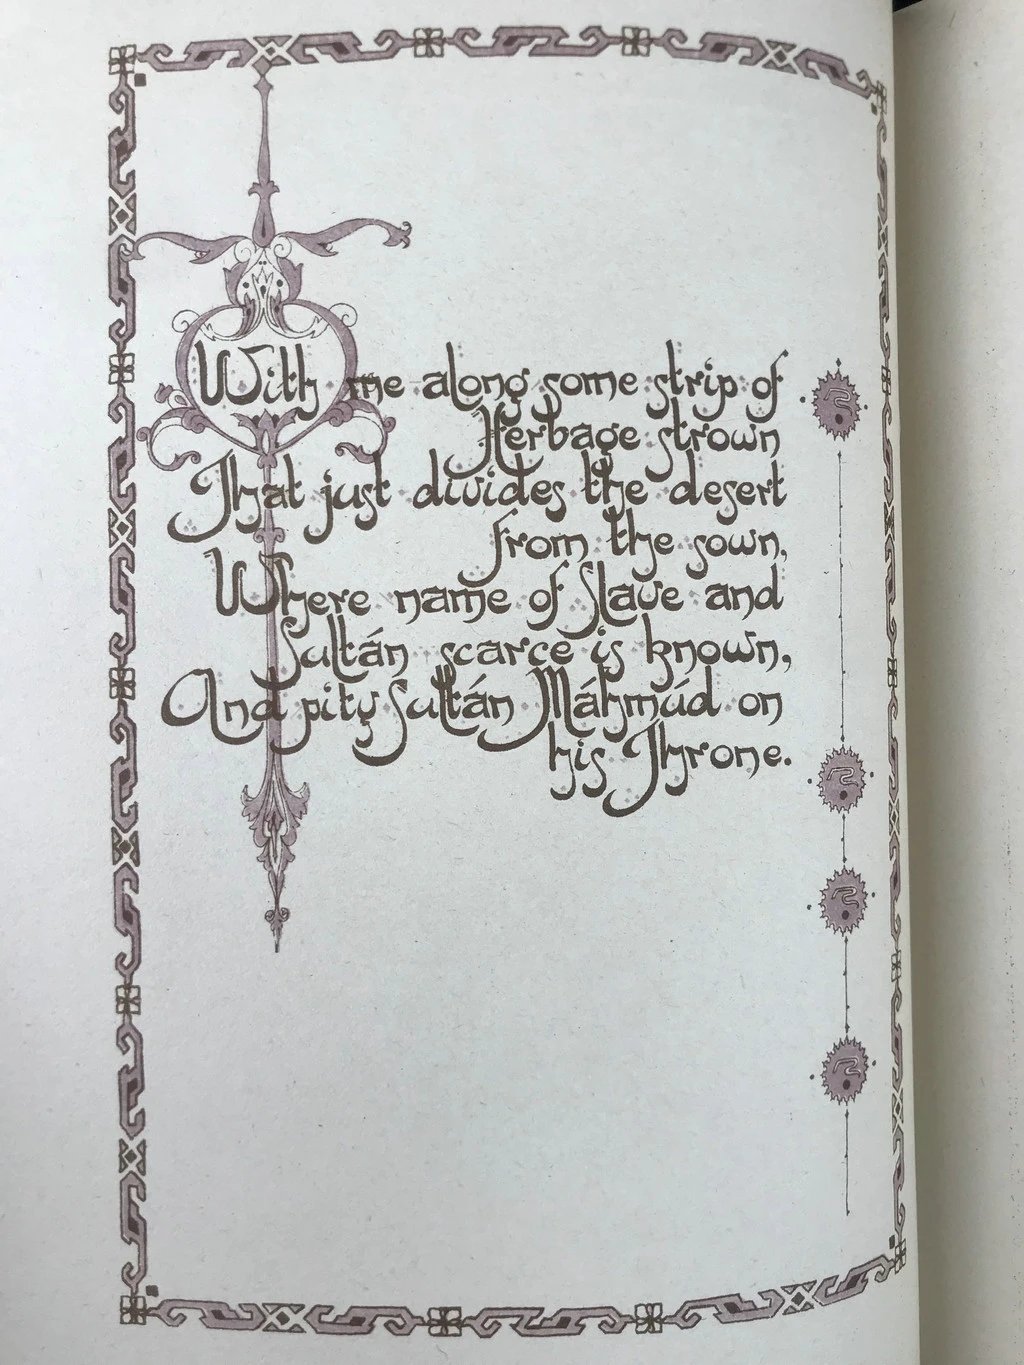 With me along some strip of
Herbage strown
That just divides the desert
from the sown,
Where name of Slave and
Sultán scarce is known,
And pity Sultán Máhmúd on
his Throne.